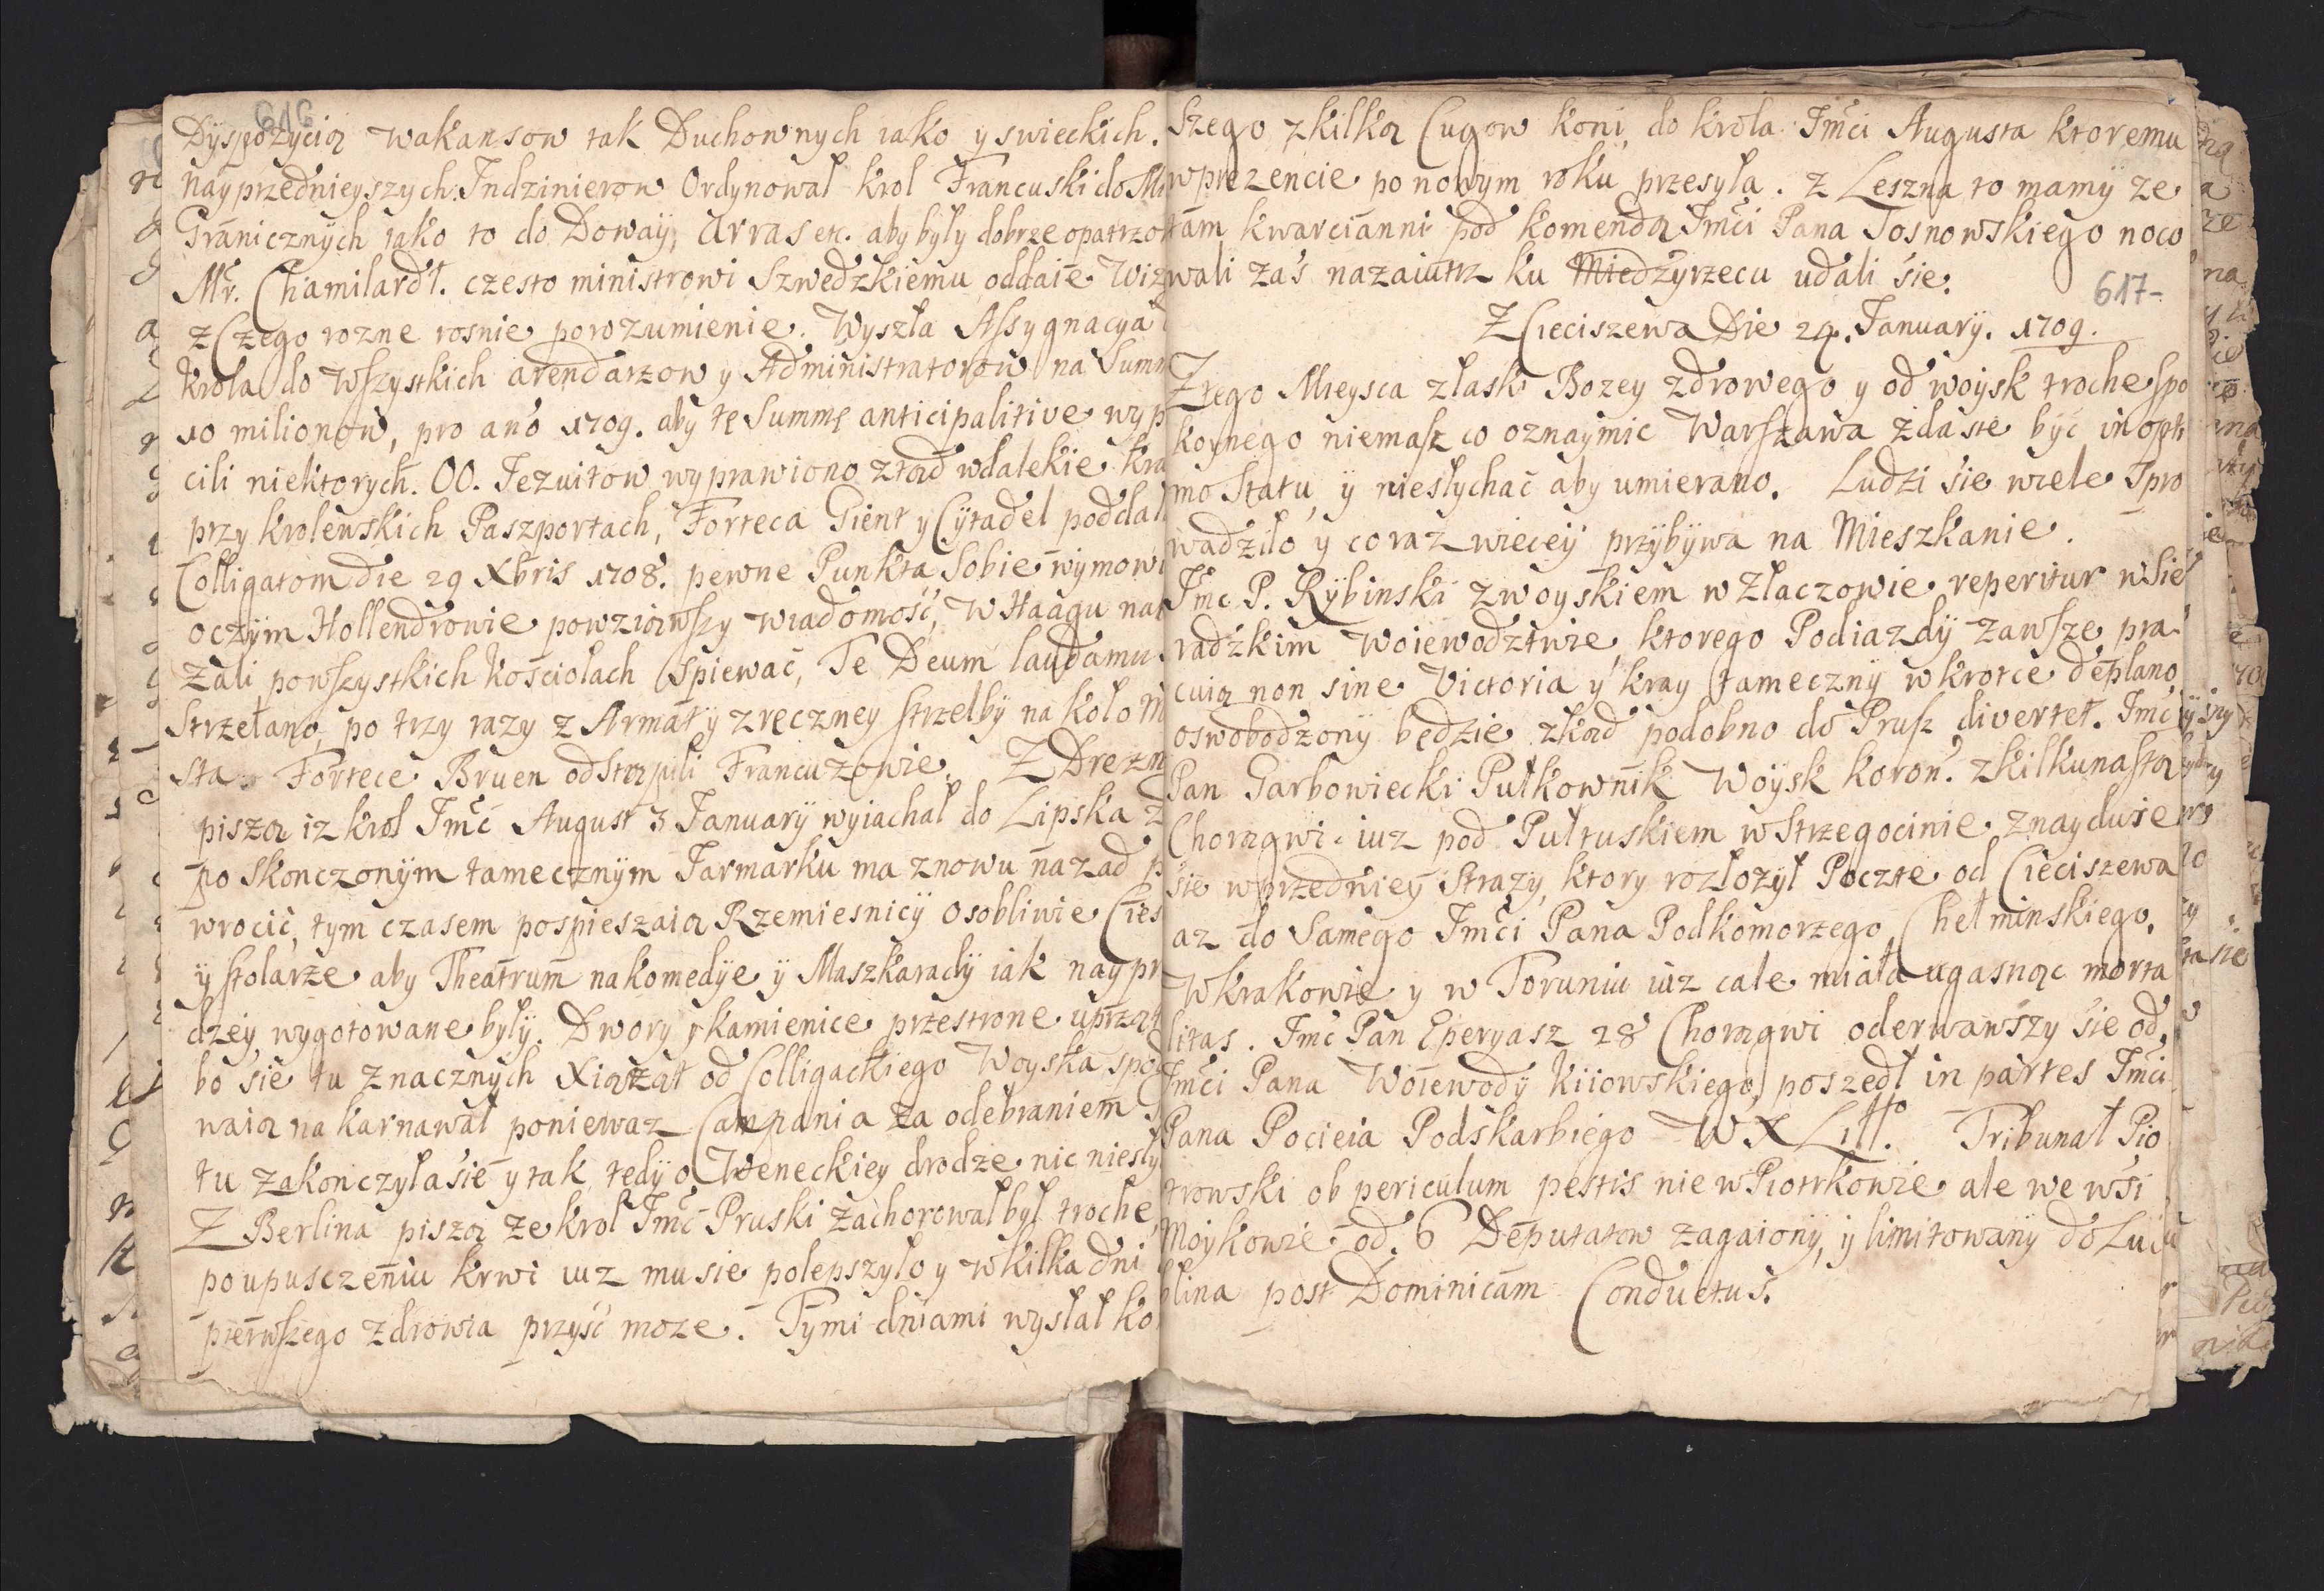 616
Dÿspozycią wakansow tak Duchownych iako y swieckich.
nayprzednieyszych Indzinierow Ordynował krol Francuski do
Granicznych iako to do Doway, Arras etc. aby były dobrze
Mr. Chamilardt. czesto ministrowi Szwedzkiemu oddaie
z Czego rozne rosnie porozumienie. Wyszła Assygnacya
krola do Wszystkich arendarzow y Administratorow na Summ
10 milionow, pro ano 1709. aby tę Summę anticipalitive
cili niektorych. OO. Jezuitow wyprawiono ztąd wdalekie
przy krolewskich Paszportach, Forteca Gient y Cytadel
Colligatom die 29 Xbris 1708. pewne Punkta Sobie
oczym Hollendrowie powziąwszy wiadomość, W Haagu
zali powszystkich kościołach Spiewać, Te Deum laudamu
Strzelano, po trzy razy z Armat y zręczney strzelby na koło
sta. Fortece Bruen odstąpili Francuzowie. Z Drezn
piszą iz krol Jmć August 3 January wyiachał do Lipska
po Skonczonym tamecznym Jarmarku ma znowu nazad
wrocić, tym czasem pospieszaią Rzemiesnicÿ osobliwie Cies
ÿ stolarze aby Theatrum nakomedÿe ÿ Maszkaradÿ iak naypr
dzey wygotowane były. Dwory y kamienice przestrone
bo sie tu znacznych Xiążąt od Colligackiego Woyska
waią na karnawał poniewaz Campania za odebraniem
tu zakonczyła sie y tak tedÿ o Weneckiey drodze nic
Z Berlina piszą ze krol Jmć Pruski zachorował był troche
po upusczeniu krwi iuz mu sie polepszyło y wkilka dni
pierwszego zdrowia przyść moze. Tymi dniami wysłał
Szego zkilką Cugow koni, do krola Jmći Augusta ktoremu
wprezencie po nowym roku przesyła. z Leszna to mamÿ ze
tam kwarcianni pod komendą Jmći Pana Tosnowskiego noco
wali zaś nazaiutrz ku Miedzyrzecu udali sie.
617-
Z Cieciszewa Die 24. January. 1709.
Ztego Mieysca złaski Bozey zdrowego y od woysk troche spo
koynego niemasz co oznaymic Warszawa zda sie być in opti
mo Statu, ÿ niesłychać aby umierano. Ludzi sie wiele Spro
wadziło y coraz wiecey przÿbÿwa na Mieszkanie.
Jmć P. Rÿbinski zwoyskiem w Złaczowie reperitur wSie
radzkim Woiewodztwie, ktorego Podiazdÿ zawsze pra
cuią non sine Victoria y kray tameczny wkrotce deplano
oswobodzonÿ będzie zkąd podobno do Prusz divertet. Jmć
Pan Garbowiecki Pułkownik Woysk koron. zkilkunastą
Chorągwi iuz pod Pułtuskiem w Strzegocinie znayduie
sie w przedniey Strazy, ktory rozłozył Poczte od Cieciszewa
az do Samego Jmći Pana Podkomorzego Chełminskiego.
Wkrakowie y w Toruniu iuz cale miała ugasnąc morta
litas. Jmć Pan Eperyasz 28 Chorągwi oderwawszy sie od
Jmći Pana Woiewody kiiowskiego, poszedł in partes Jmći
Pana Pocieia Podskarbiego W X Litt. Tribunał Pio
trowski ob periculum pestis nie w Piotrkowie ale we wśi
Moykowie od 6 Deputatow zagaiony, ÿ limitowanÿ do Lu
blina post Dominicam Conductus.